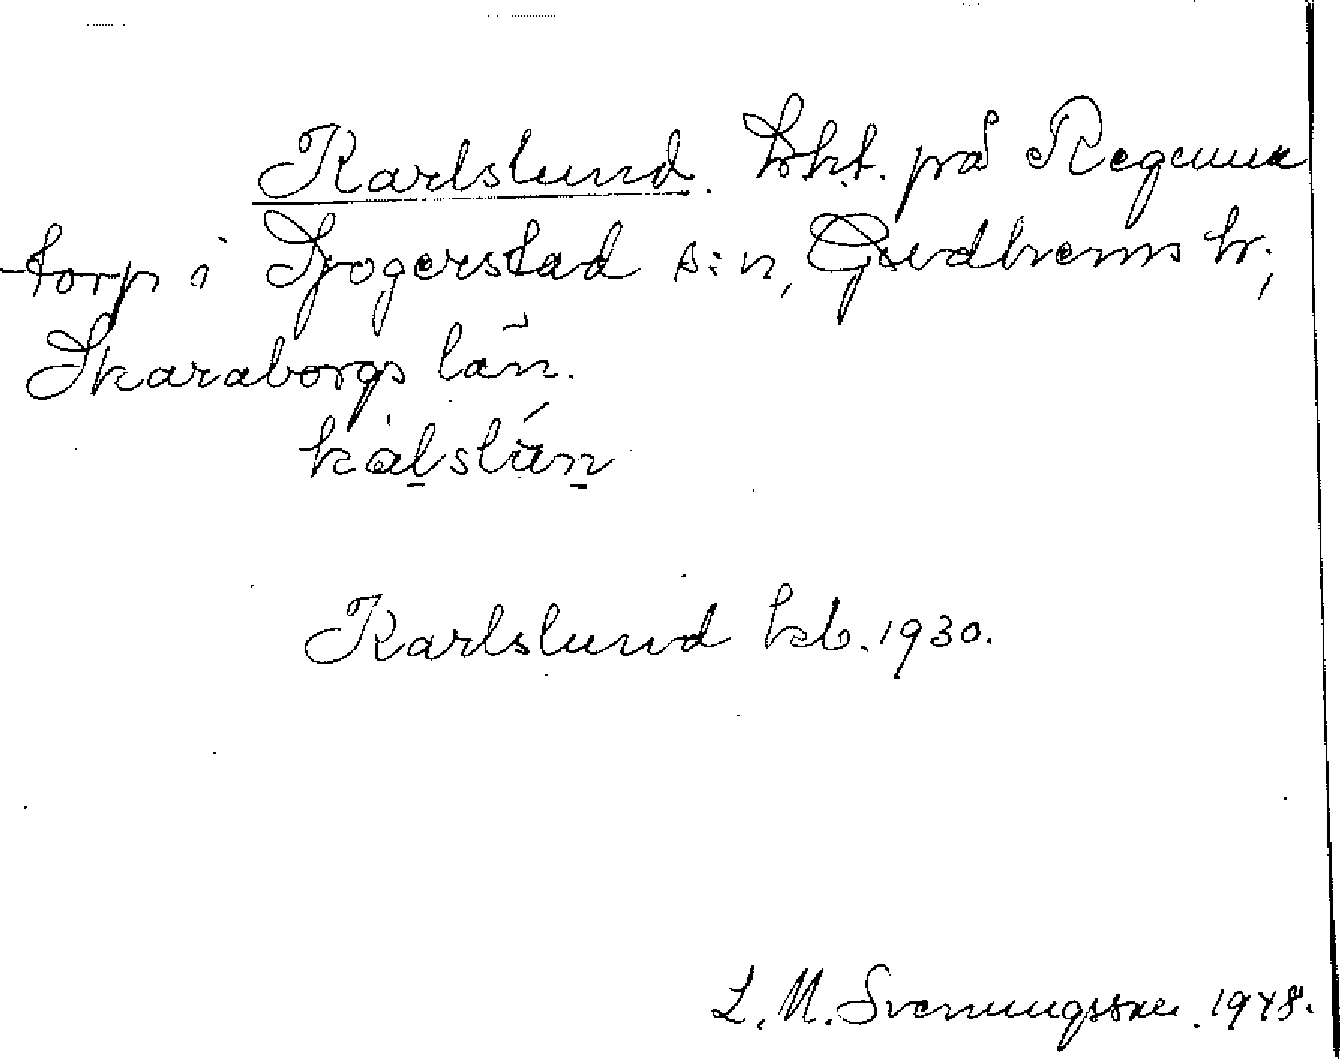 Karlslund. hkt. på Regumatorp i Sjogerstad s:n, Gudhems hr;
Skaraborgs län.
kalslún
Karlslund kb. 1930.
L. M. Svenungsson. 1948.